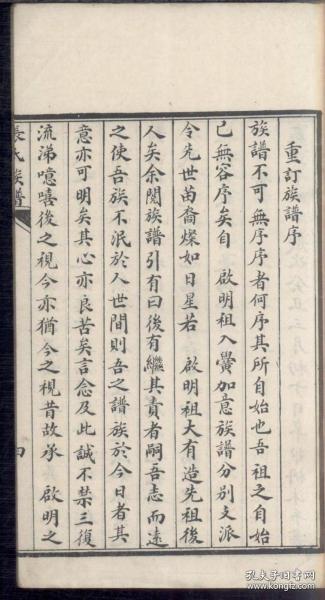 重訂族譜序
族譜不可無序序者何序其所自始也吾祖之自始
已無容序矣自 啟明祖入黌加意族譜分別支派
令先世苗裔燦如日星若 啟明祖大有造先祖後
人矣余閱族譜引有曰後有繼其責者嗣吾志而遠
之使吾族不泯於人世間則吾之譜族於今日者其
意亦可明矣其心亦良苦矣言念及此誠不禁三復
流涕噫嘻後之視今亦猶今之視昔故承 啟明之
張氏族譜
四
孔夫子旧书网